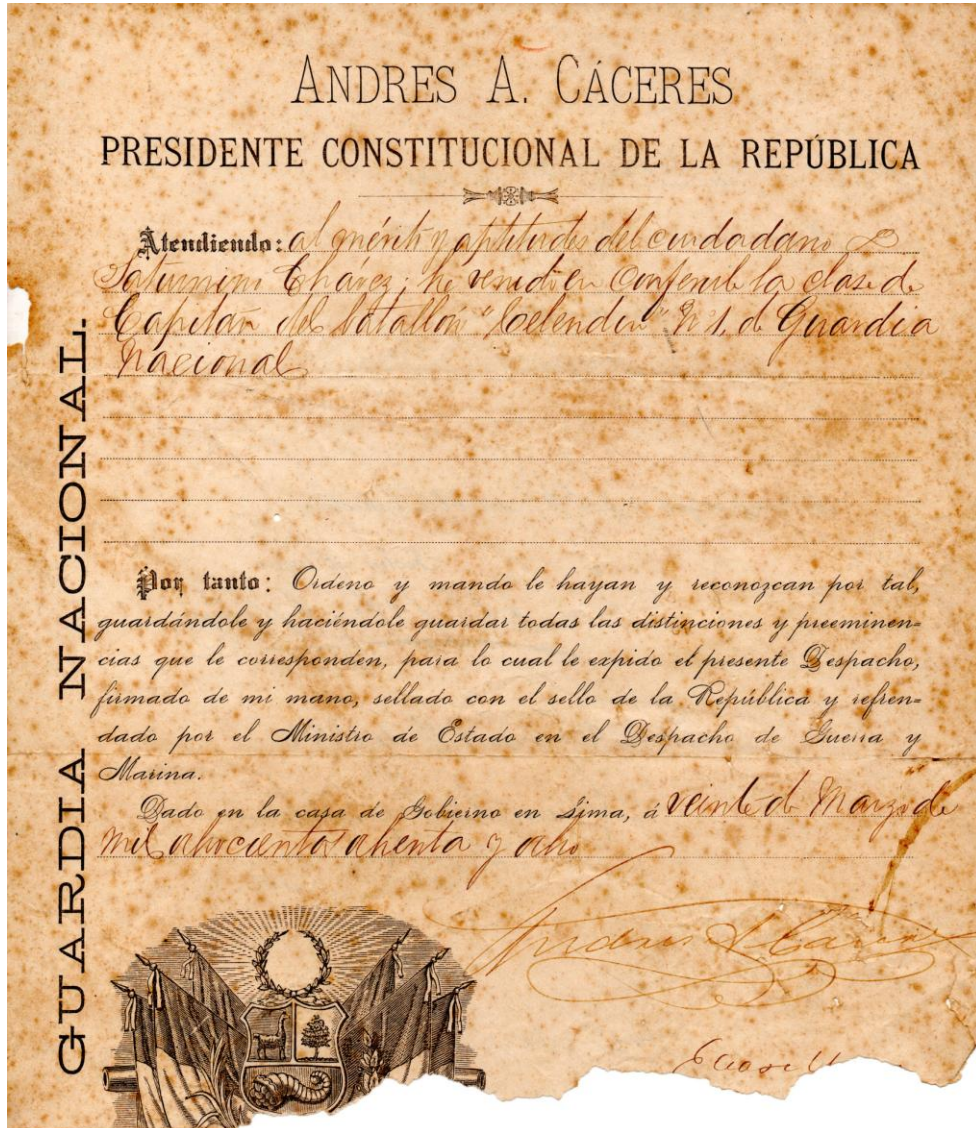 ANDRES A. CÁCERES
PRESIDENTE CONSTITUCIONAL DE LA REPÚBLICA
GUARDIA NACIONAL.
Atendiendo: al mérito y aptitudes del ciudadano
Saturnino Chavez; he venido en conferirle la clase de
Capitán del batallón "Celendin" Nº 1, de Guardia
Nacional
Por tanto: Ordeno y mando le hayan y reconozcan por tal,
guardándole y haciéndole guardar todas las distinciones y preeminen-
cias que le corresponden, para lo cual le expido el presente Despacho,
firmado de mi mano, sellado con el sello de la República y refren-
dado por el Ministro de Estado en el Despacho de Guerra y
Marina.
Dado en la casa de Gobierno en Lima, á veinte de Marzo de
mil ochocientos ochenta y ocho
Andres A. Caceres